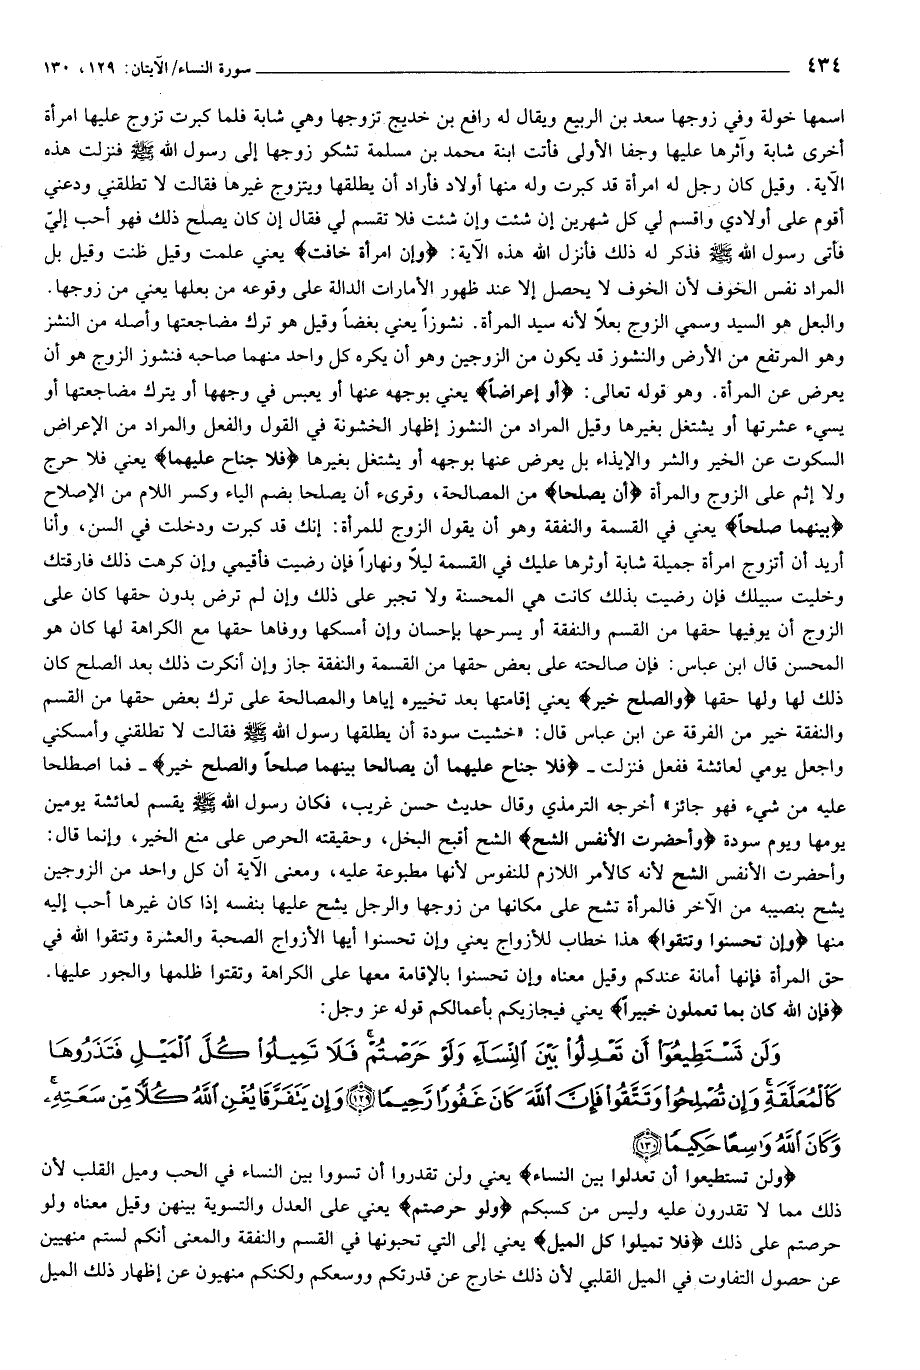 ٤٣٤ ــــــــــــــــــــ سورة النساء/ الآيتان: ١٢٩، ١٣٠
اسمها خولة وفي زوجها سعد بن الربيع ويقال له رافع بن خديج تزوجها وهي شابة فلما كبرت تزوج عليها امرأة
أخرى شابة وآثرها عليها وجفا الأولى فأتت ابنة محمد بن مسلمة تشكو زوجها إلى رسول الله ﷺ فنزلت هذه
الآية. وقيل كان رجل له امرأة قد كبرت وله منها أولاد فأراد أن يطلقها ويتزوج غيرها فقالت لا تطلقني ودعني
أقوم على أولادي واقسم لي كل شهرين إن شئت وإن شئت فلا تقسم لي فقال إن كان يصلح ذلك فهو أحب إليّ
فأتى رسول الله ﷺ فذكر له ذلك فأنزل الله هذه الآية: ﴿وإن امرأة خافت﴾ يعني علمت وقيل ظنت وقيل بل
المراد نفس الخوف لأن الخوف لا يحصل إلا عند ظهور الأمارات الدالة على وقوعه من بعلها يعني من زوجها.
والبعل هو السيد وسمي الزوج بعلاً لأنه سيد المرأة. نشوزاً يعني بغضاً وقيل هو ترك مضاجعتها وأصله من النشز
وهو المرتفع من الأرض والنشوز قد يكون من الزوجين وهو أن يكره كل واحد منهما صاحبه فنشوز الزوج هو أن
يعرض عن المرأة. وهو قوله تعالى: ﴿أو إعراضاً﴾ يعني بوجهه عنها أو يعبس في وجهها أو يترك مضاجعتها أو
يسيء عشرتها أو يشتغل بغيرها وقيل المراد من النشوز إظهار الخشونة في القول والفعل والمراد من الإعراض
السكوت عن الخير والشر والإيذاء بل يعرض عنها بوجهه أو يشتغل بغيرها ﴿فلا جناح عليهما﴾ يعني فلا حرج
ولا إثم على الزوج والمرأة ﴿أن يصلحا﴾ من المصالحة، وقرىء أن يصلحا بضم الياء وكسر اللام من الإصلاح
﴿بينهما صلحاً﴾ يعني في القسمة والنفقة وهو أن يقول الزوج للمرأة: إنك قد كبرت ودخلت في السن، وأنا
أريد أن أتزوج امرأة جميلة شابة أوثرها عليك في القسمة ليلاً ونهاراً فإن رضيت فأقيمي وإن كرهت ذلك فارقتك
وخليت سبيلك فإن رضيت بذلك كانت هي المحسنة ولا تجبر على ذلك وإن لم ترض بدون حقها كان على
الزوج أن يوفيها حقها من القسم والنفقة أو يسرحها بإحسان وإن أمسكها ووفاها حقها مع الكراهة لها كان هو
المحسن قال ابن عباس: فإن صالحته على بعض حقها من القسمة والنفقة جاز وإن أنكرت ذلك بعد الصلح كان
ذلك لها ولها حقها ﴿والصلح خير﴾ يعني إقامتها بعد تخييره إياها والمصالحة على ترك بعض حقها من القسم
والنفقة خير من الفرقة عن ابن عباس قال: «خشيت سودة أن يطلقها رسول الله ﷺ فقالت لا تطلقني وأمسكني
واجعل يومي لعائشة ففعل فنزلت ـ ﴿فلا جناح عليهما أن يصالحا بينهما صلحاً والصلح خير﴾ ـ فما اصطلحا
عليه من شيء فهو جائز» أخرجه الترمذي وقال حديث حسن غريب، فكان رسول الله ﷺ يقسم لعائشة يومين
يومها ويوم سودة ﴿وأحضرت الأنفس الشح﴾ الشح أقبح البخل، وحقيقته الحرص على منع الخير، وإنما قال:
وأحضرت الأنفس الشح لأنه كالأمر اللازم للنفوس لأنها مطبوعة عليه، ومعنى الآية أن كل واحد من الزوجين
يشح بنصيبه من الآخر فالمرأة تشح على مكانها من زوجها والرجل يشح عليها بنفسه إذا كان غيرها أحب إليه
منها ﴿وإن تحسنوا وتتقوا﴾ هذا خطاب للأزواج يعني وإن تحسنوا أيها الأزواج الصحبة والعشرة وتتقوا الله في
حق المرأة فإنها أمانة عندكم وقيل معناه وإن تحسنوا بالإقامة معها على الكراهة وتقتوا ظلمها والجور عليها.
﴿فإن الله كان بما تعملون خبيراً﴾ يعني فيجازيكم بأعمالكم قوله عز وجل:
وَلَن تَسْتَطِيعُوٓا۟ أَن تَعْدِلُوا۟ بَيْنَ ٱلنِّسَآءِ وَلَوْ حَرَصْتُمْ ۖ فَلَا تَمِيلُوا۟ كُلَّ ٱلْمَيْلِ فَتَذَرُوهَا
كَٱلْمُعَلَّقَةِ ۚ وَإِن تُصْلِحُوا۟ وَتَتَّقُوا۟ فَإِنَّ ٱللَّهَ كَانَ غَفُورًا رَّحِيمًا ﴿١٢٩﴾ وَإِن يَتَفَرَّقَا يُغْنِ ٱللَّهُ كُلًّا مِّن سَعَتِهِۦ ۚ
وَكَانَ ٱللَّهُ وَٰسِعًا حَكِيمًا ﴿١٣٠﴾
﴿ولن تستطيعوا أن تعدلوا بين النساء﴾ يعني ولن تقدروا أن تسووا بين النساء في الحب وميل القلب لأن
ذلك مما لا تقدرون عليه وليس من كسبكم ﴿ولو حرصتم﴾ يعني على العدل والتسوية بينهن وقيل معناه ولو
حرصتم على ذلك ﴿فلا تميلوا كل الميل﴾ يعني إلى التي تحبونها في القسم والنفقة والمعنى أنكم لستم منهيين
عن حصول التفاوت في الميل القلبي لأن ذلك خارج عن قدرتكم ووسعكم ولكنكم منهيون عن إظهار ذلك الميل